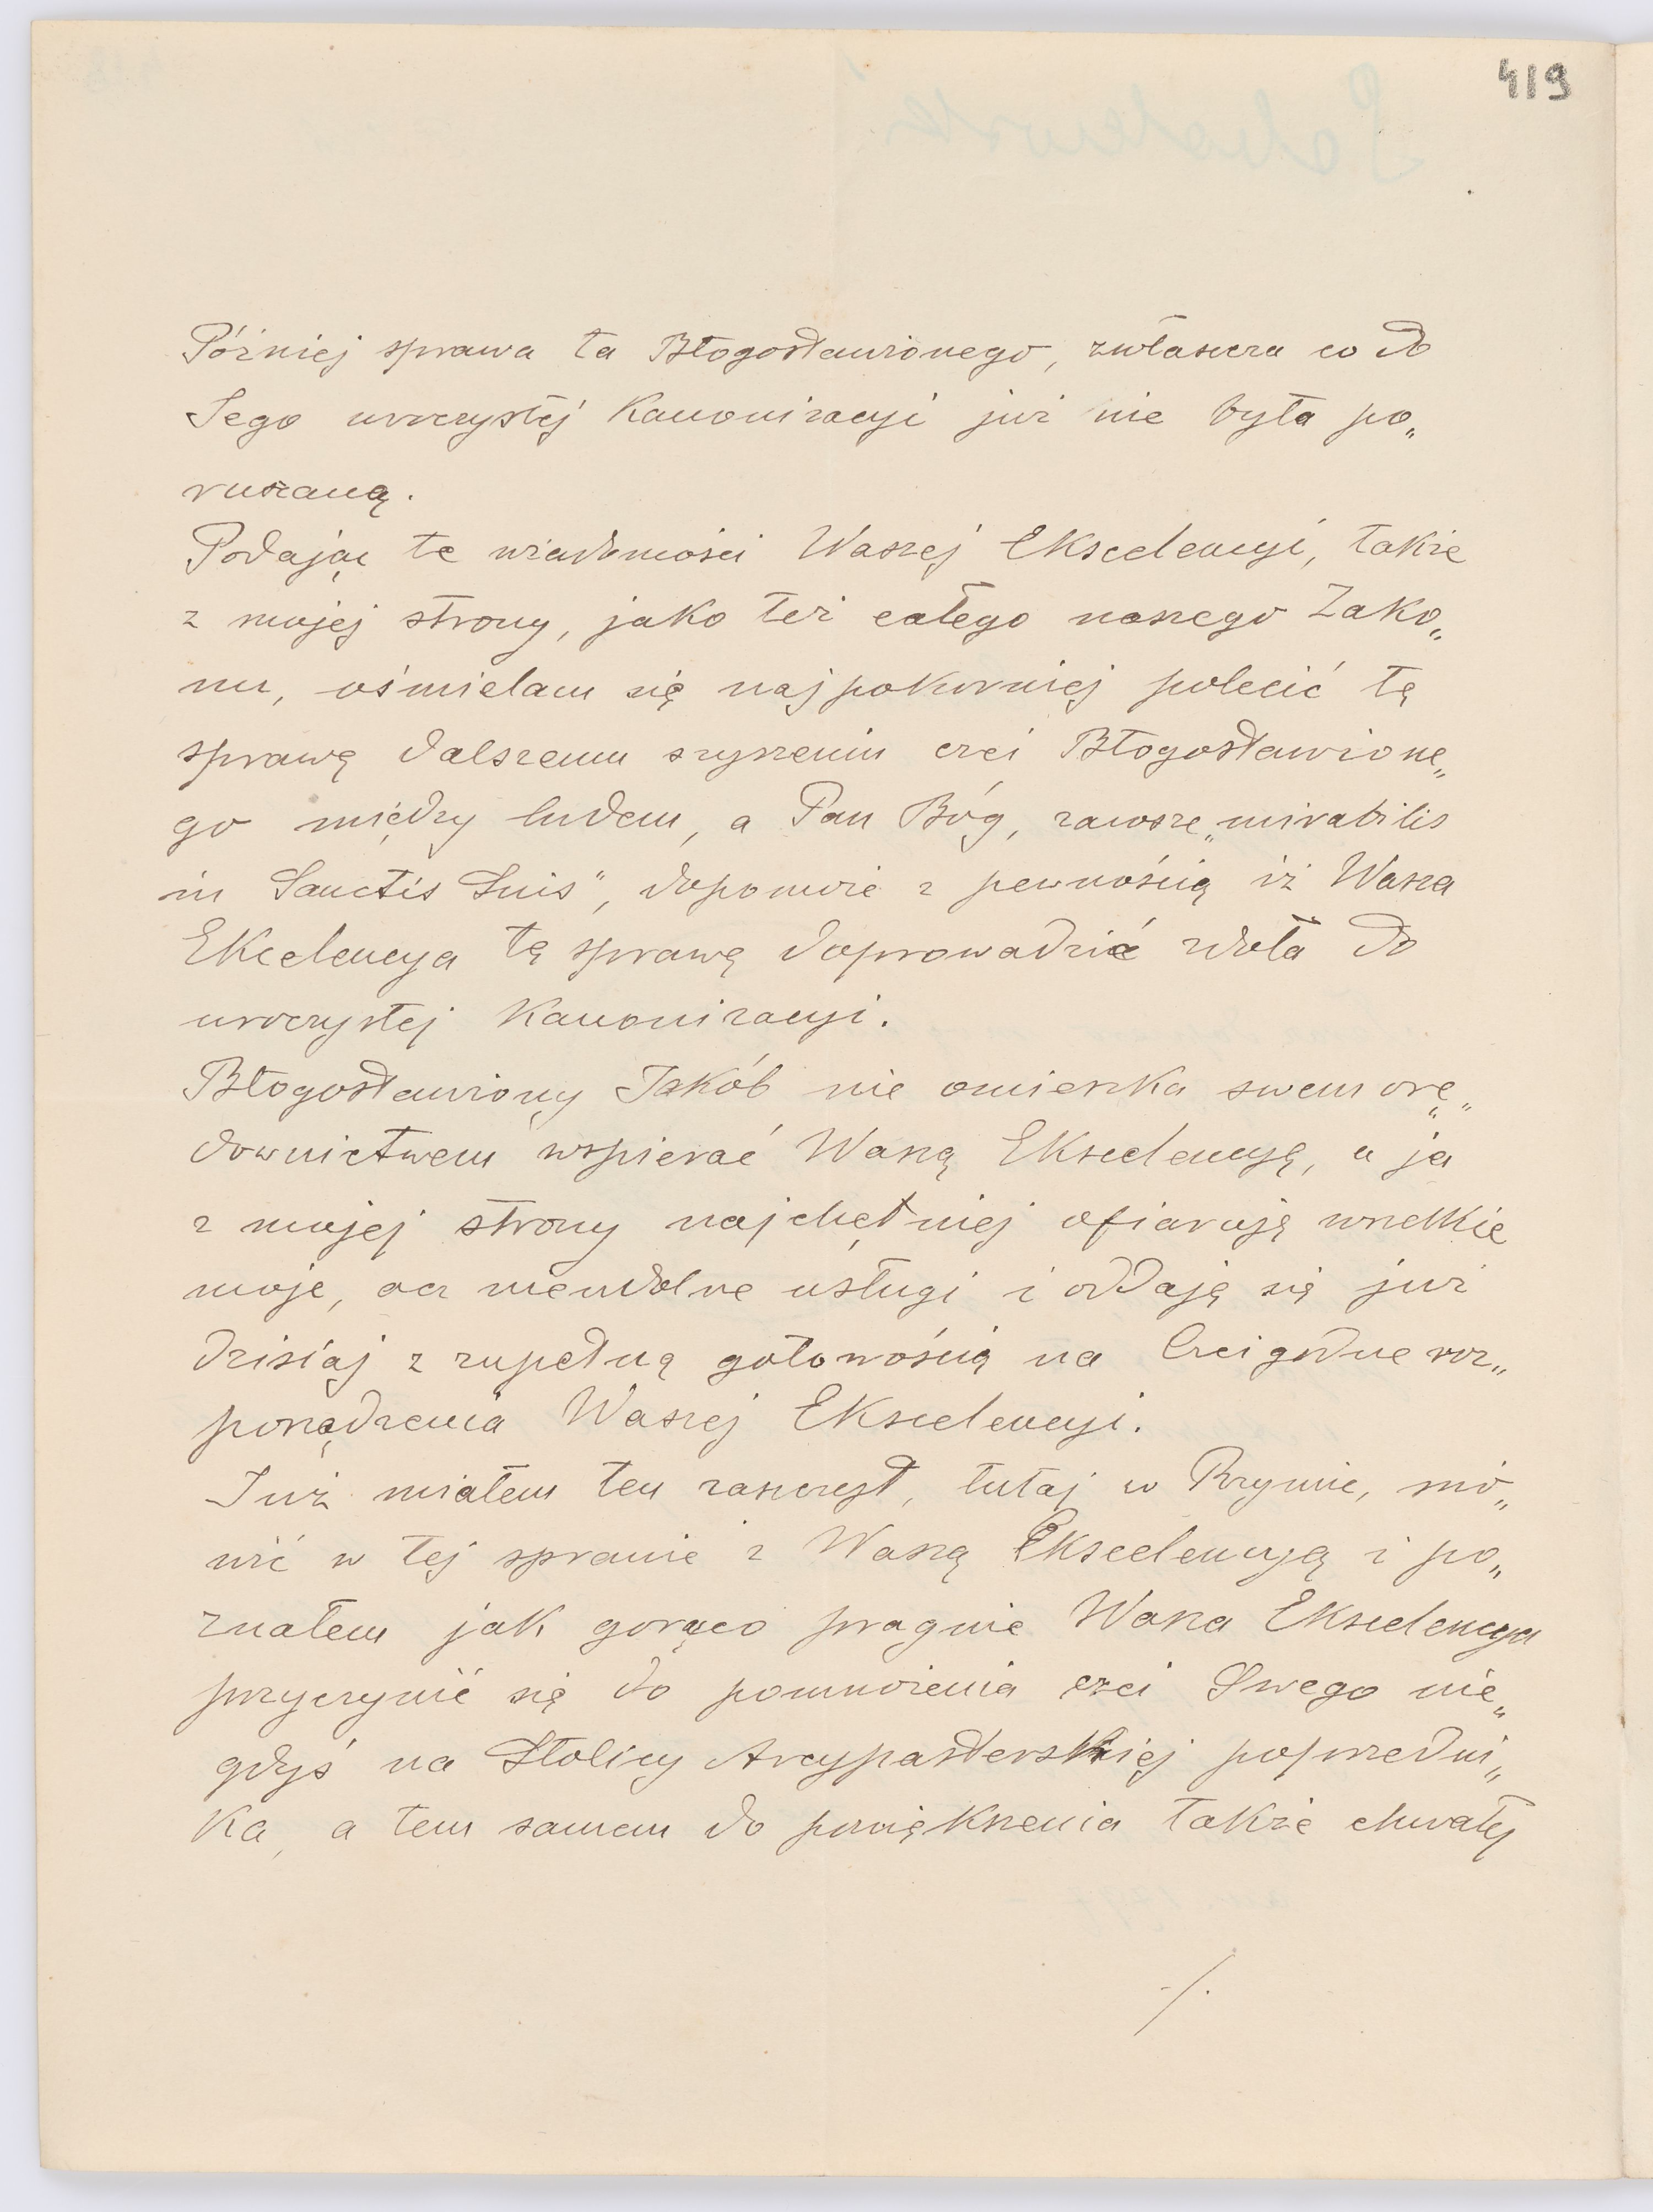 419
Później sprawa ta Błogosławionego, zwłaszcza co do
Jego uroczystej Kanonizacyi już nie była po„
ruszaną.
Podając te wiadomości Waszej Ekscelencyi, także
z mojej strony, jako też całego naszego Zako„
nu, ośmielam się najpokorniej polecić tę
sprawę dalszemu szyrzeniu czci Błogosławione„
go między ludem, a Pan Bóg, zawsze „mirabilis
in Sanctis Suis", dopomoże z pewnością iż Wasza
Ekcelencya tę sprawę doprowadzić zdoła do
uroczystej Kanonizacyi.
Błogosławiony Jakób nie omieszka swem orę„
downictwem wspierać Waszą Ekscelencyę, a ja
z mojej strony najchętniej ofiaruję wszelkie
moje, acz nieudolne usługi i oddaję się już
dzisiaj z zupełną gotowością na Czcigodne roz„
porządzenia Waszej Ekscelencyi.
Już miałem ten zaszczyt, tutaj w Rzymie, mó„
wić w tej sprawie z Waszą Ekscelencyą i po„
znałem jak gorąco pragnie Wasza Ekscelencya
przyczynić się do pomnożenia czci Swego nie„
gdyś na Stolicy Arcypasterskiej poprzedni„
ka, a tem samem do powiększenia także chwały
./.